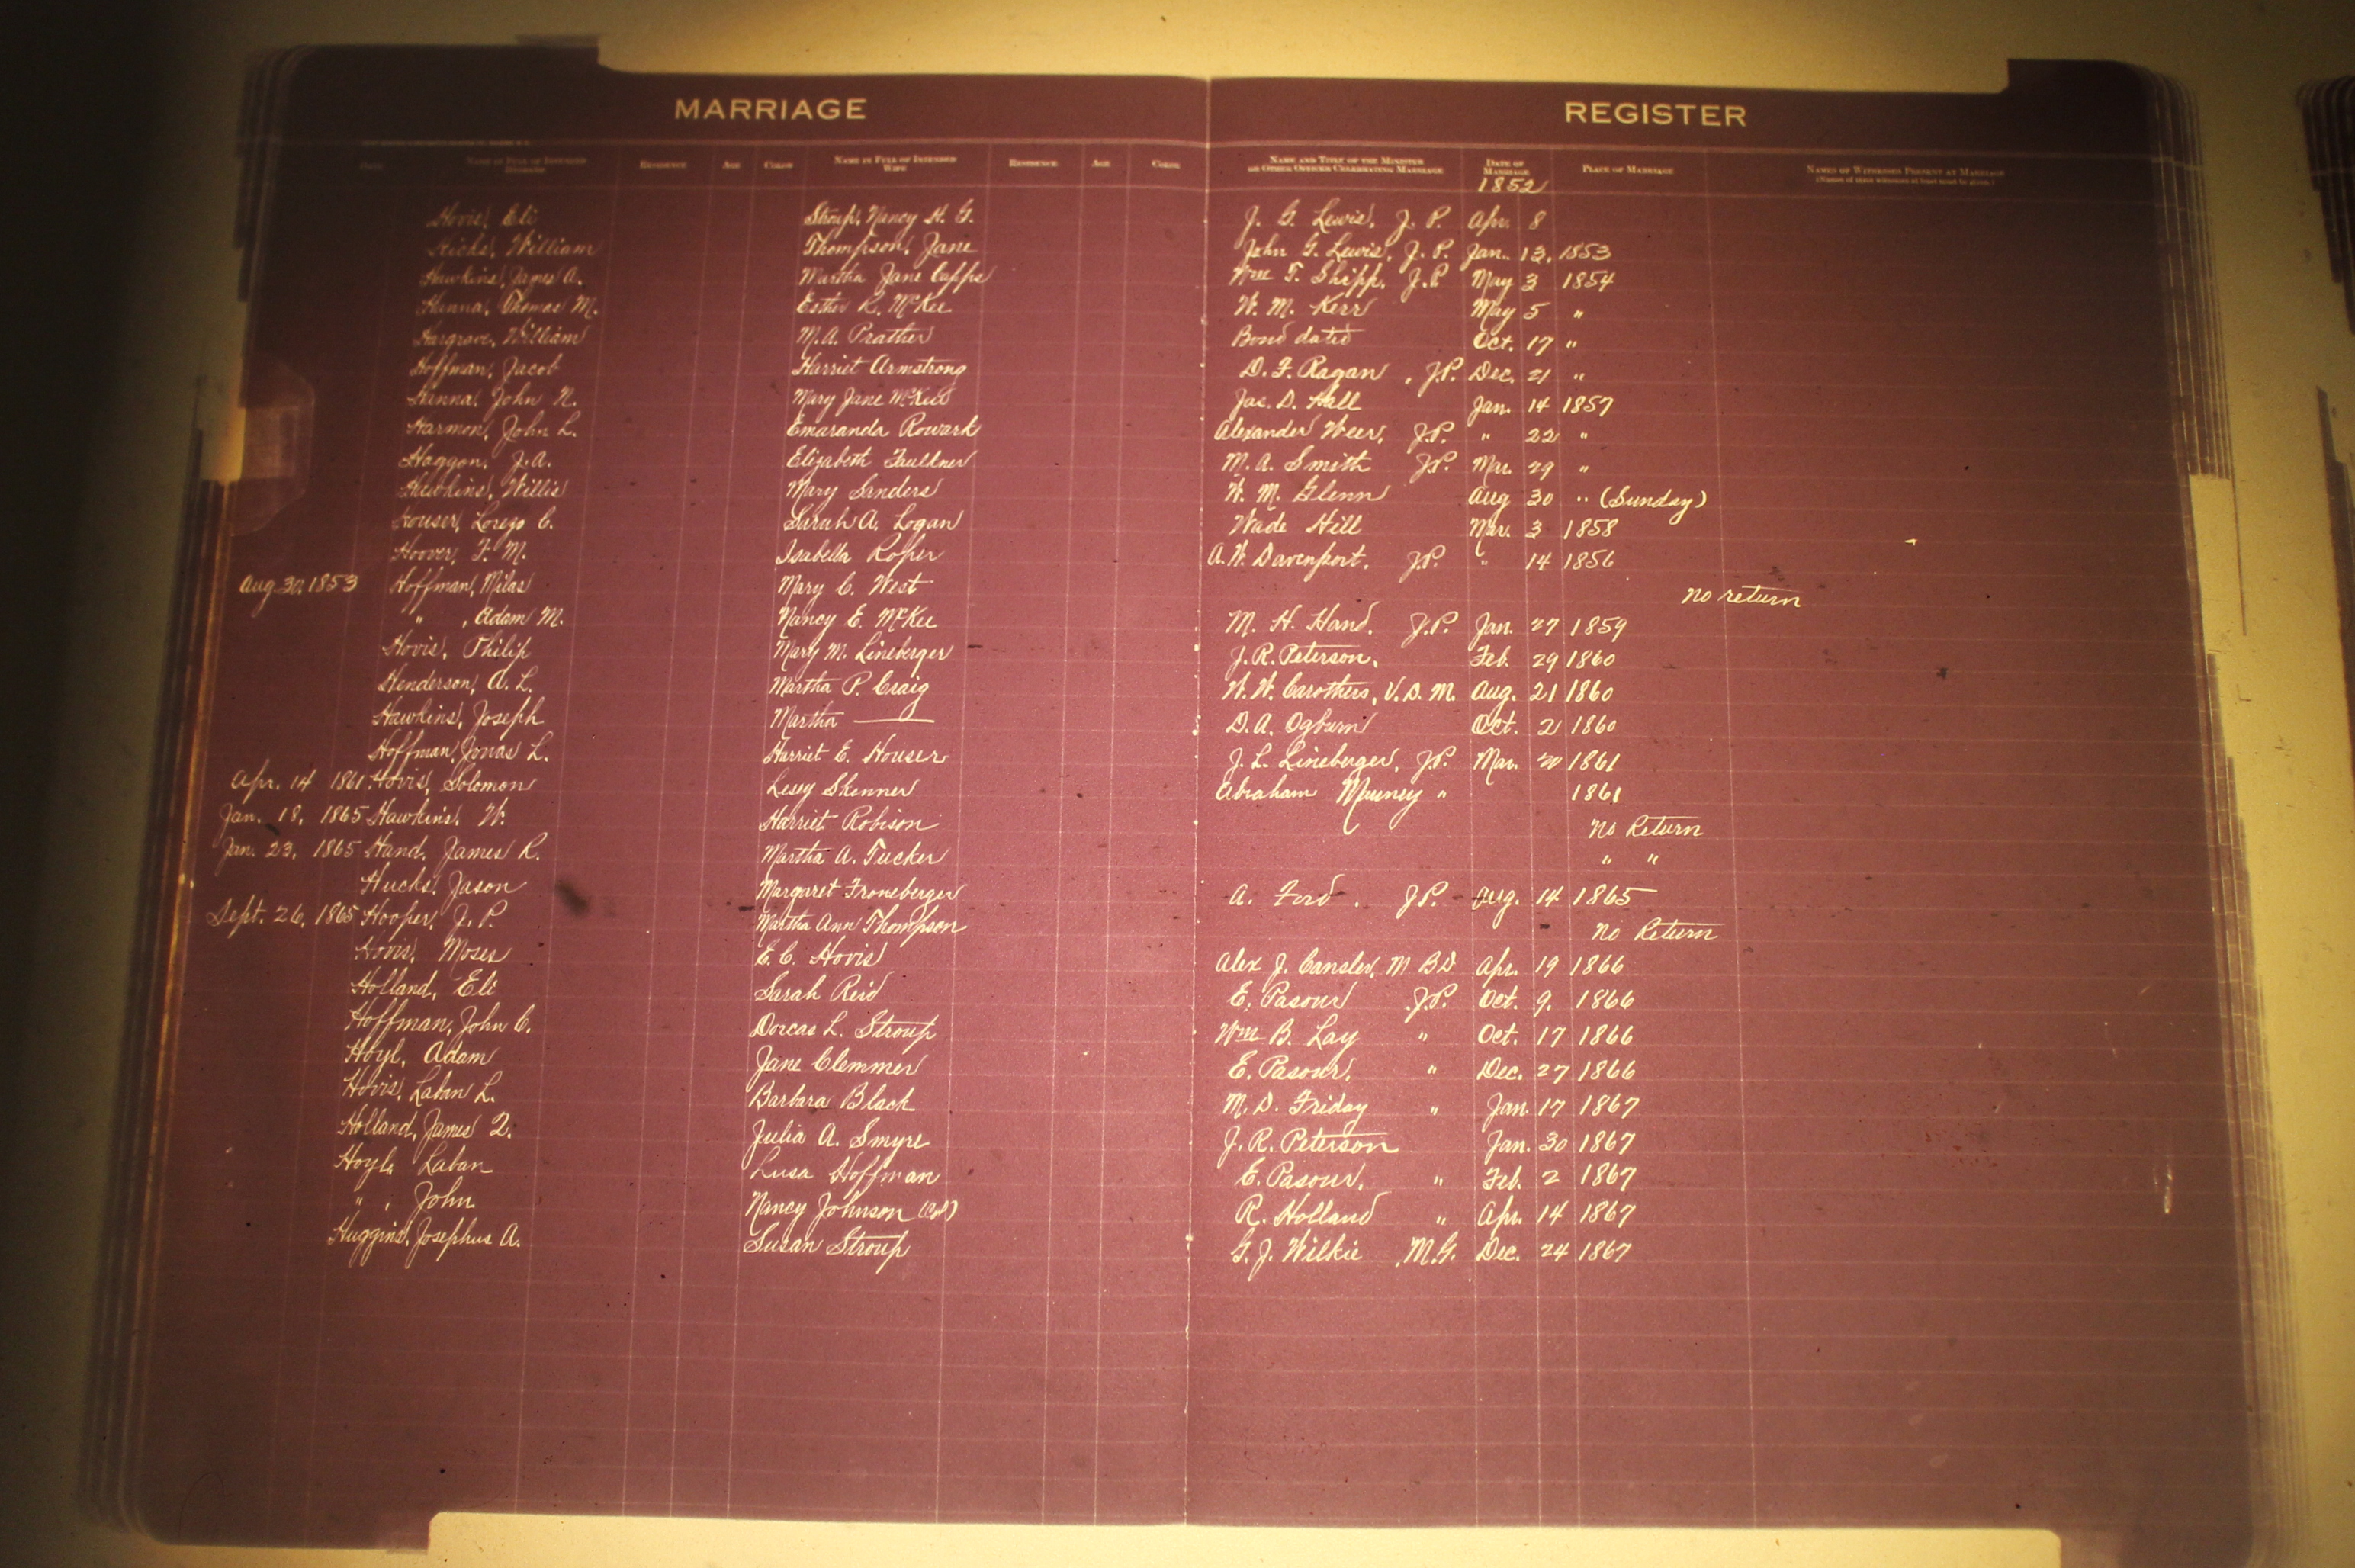 MARRIAGE REGISTER
DATE NAME IN FULL OF INTENDED HUSBAND RESIDENCE AGE COLOR NAME IN FULL OF INTENDED WIFE RESIDENCE AGE COLOR NAME AND TITLE OF THE MINISTER OR OTHER OFFICER CELEBRATING MARRIAGE DATE OF MARRIAGE PLACE OF MARRIAGE NAMES OF WITNESSES PRESENT AT MARRIAGE
1852
Hovis, Eli Stroup, Nancy H. G. J. G. Lewis, J. P. Apr. 8
Hicks, William Thompson, Jane John G. Lewis, J. P. Jan. 13, 1853
Hawkins, James A. Martha Jane Capps Wm T. Shipp, J.P May 3 1854
Hanna, Thomas M. Esther R. McKee W. M. Kerr May 5 "
Hargrove, William M.A. Prather Bond dated Oct. 17 "
Hoffman, Jacob Harriet Armstrong D. F. Ragan, J.P. Dec. 21 "
Hanna, John N. Mary Jane McKee Jas. D. Hall Jan. 14 1857
Harmon, John L. Emaranda Rowark Alexander Weer, J.P. " 22 "
Haggon, J.A. Elizabeth Fauldner M. A. Smith J.P. Mar. 29 "
Hawkins, Willis Mary Sanders W. M. Glenn Aug 30 " (Sunday)
Houser, Lorezo C. Sarah A. Logan Wade Hill Mar. 3 1858
Hoover, F. M. Isabella Roper A. W. Davenport, J.P. " 14 1856
Aug 30, 1853 Hoffman, Milas Mary C. West no return
" , Adam M. Nancy E. McKee M. H. Hand, J.P. Jan. 27 1859
Hovis, Philip Mary M. Lineberger J. R. Peterson, Feb. 29 1860
Henderson, A. L. Martha P. Craig W. W. Carothers, V. D. M. Aug. 21 1860
Hawkins, Joseph Martha —— D. A. Ogburn Oct. 21 1860
Hoffman, Jonas L. Harriet E. Houser J. L. Lineberger, J.P. Mar. 20 1861
Apr. 14 1861 Hovis, Solomon Lesey Skinner Abraham " 1861
Jan. 18, 1865 Hawkins, W. Harriet Robison no Return
Jan. 23, 1865 Hand, James R. Martha A. Tucker " "
Hucks, Jason Margaret Froneberger A. Ford, J.P. Aug. 14 1865
Sept. 26, 1865 Hooper, J. P. Martha Ann Thompson no Return
Hovis, Moses E. C. Hovis Alex J. Cansler, M B D Apr. 19 1866
Holland, Eli Sarah Reid E. Pasour J.P. Oct. 9. 1866
Hoffman, John C. Dorcas L. Stroup Wm B. Lay " Oct. 17 1866
Hoyl, Adam Jane Clemmer E. Pasour, " Dec. 27 1866
Hovis, Laban L. Barbara Black M. D. Friday " Jan. 17 1867
Holland, James Q. Julia A. Smyre J. R. Peterson Jan. 30 1867
Hoyl, Laban Lusa Hoffman E. Pasour, " Feb. 2 1867
" , John Nancy Johnson (Col) R. Holland " Apr. 14 1867
Huggins, Josephus A. Susan Stroup G. J. Wilkie, M.G. Dec. 24 1867